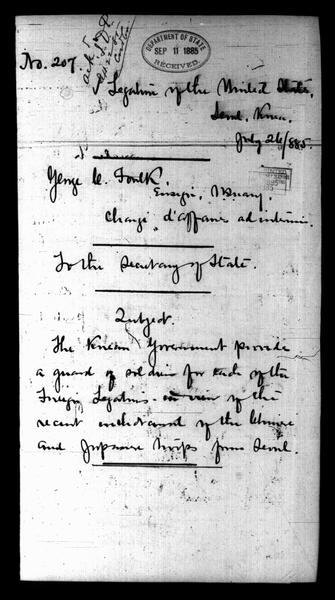 No. 207.
DEPARTMENT OF STATE
SEP 11 1885
RECEIVED.
Legation of the United States,
Seoul, Korea.
July 26/885.
George C. Foulk,
Ensign, U.S. Navy,
Chargé d'affaires ad interim.
To the Secretary of State.
Subject.
The Korean Government provide
a guard of soldiers for each of the
Foreign Legations in view of the
recent withdrawal of the Chinese
and Japanese troops from Seoul.